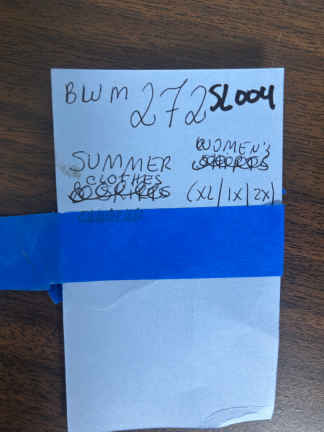 BWM 272 SL004
WOMEN'S
SUMMER
CLOTHES
(XL/1X/2X)